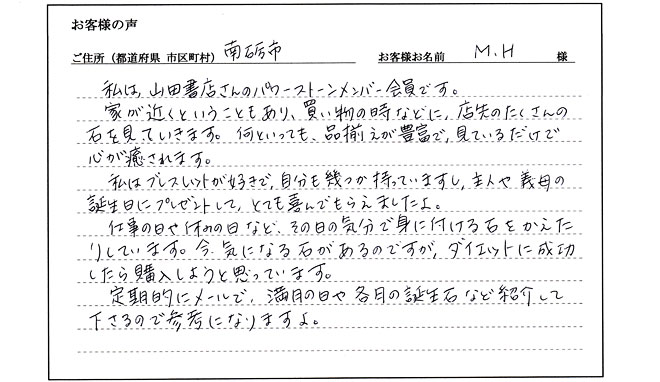 お客様の声
ご住所（都道府県 市区町村） 南砺市 お客様お名前 M.H 様
私は、山田書店さんのパワーストーンメンバー会員です。
家が近くということもあり、買い物の時などに、店先のたくさんの
石を見ていきます。何といっても、品揃えが豊富で、見ているだけで
心が癒されます。
私はブレスレットが好きで、自分も幾つか持っていますし、主人や義母の
誕生日にプレゼントして、とても喜んでもらえましたよ。
仕事の日や休みの日など、その日の気分で身に付ける石をかえた
りしています。今、気になる石があるのですが、ダイエットに成功
したら購入しようと思っています。
定期的にメールで、満月の日や各月の誕生石など紹介して
下さるので参考になりますよ。